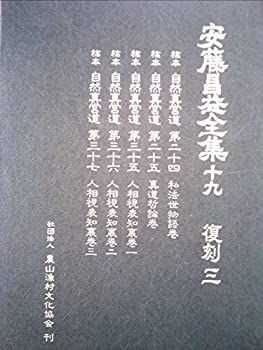 安藤昌益全集 十九 復刻 三
稿本 自然真営道 第二十四 私法世物語巻
稿本 自然真営道 第二十五 真道哲論巻
稿本 自然真営道 第三十五 人相視表知裏巻一
稿本 自然真営道 第三十六 人相視表知裏巻二
稿本 自然真営道 第三十七 人相視表知裏巻三
社団法人 農山漁村文化協会 刊